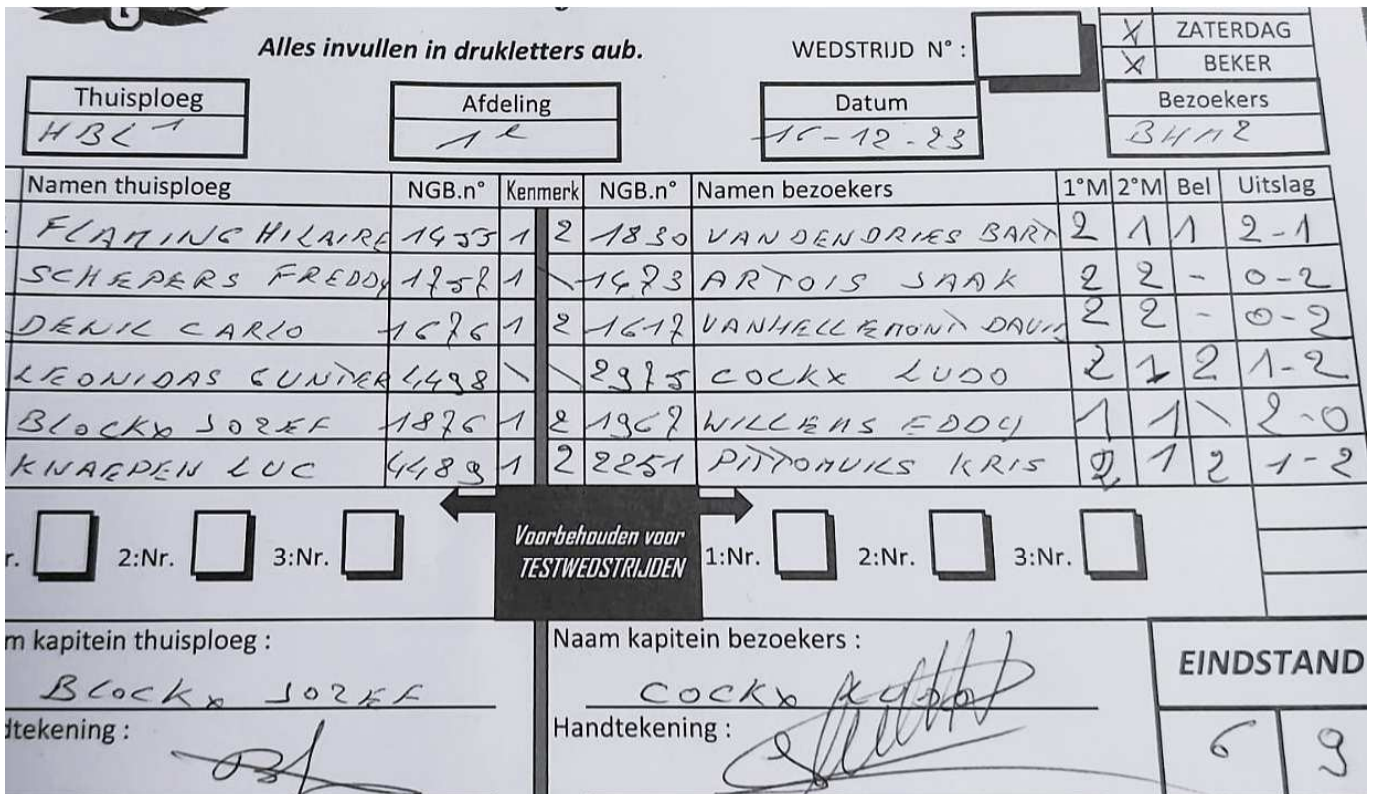 Alles invullen in drukletters aub. WEDSTRIJD N° : X ZATERDAG
X BEKER
Thuisploeg Afdeling Datum Bezoekers
HBL 1 1e 16-12-23 BHM2
Namen thuisploeg NGB.n° Kenmerk NGB.n° Namen bezoekers 1°M 2°M Bel Uitslag
FLAMING HILAIRE 1455 1 2 1830 VANDENDRIES BART 2 1 1 2-1
SCHEPERS FREDDY 1757 1 \ 1473 ARTOIS JAAK 2 2 - 0-2
DENIL CARLO 1676 1 2 1617 VANHELLEMONT DAVID 2 2 - 0-2
LEONIDAS GUNTER 4498 \ \ 2975 COCKX LUDO 2 1 2 1-2
BLOCKX JOZEF 1876 1 2 1967 WILLEMS EDDY 1 1 \ 2-0
KNAEPEN LUC 4489 1 2 2251 PITTOMVILS KRIS 2 1 2 1-2
r. 2:Nr. 3:Nr. Voorbehouden voor 1:Nr. 2:Nr. 3:Nr.
TESTWEDSTRIJDEN
m kapitein thuisploeg : Naam kapitein bezoekers : EINDSTAND
BLOCKX JOZEF COCKX
dtekening : Handtekening : 6 9